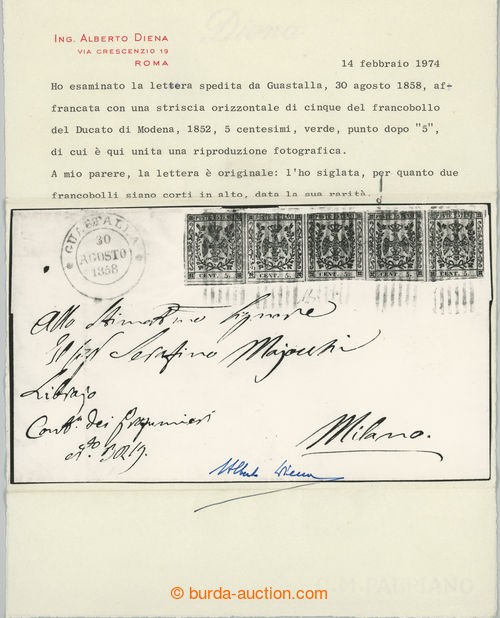 Diena
ING. ALBERTO DIENA
VIA CRESCENZIO 19
ROMA
14 febbraio 1974
Ho esaminato la lettera spedita da Guastalla, 30 agosto 1858, af-
francata con una striscia orizzontale di cinque del francobollo
del Ducato di Modena, 1852, 5 centesimi, verde, punto dopo "5",
di cui è qui unita una riproduzione fotografica.
A mio parere, la lettera è originale: l'ho siglata, per quanto due
francobolli siano corti in alto, data la sua rarità.
GUASTALLA
30
AGOSTO
1858
CENT. 5. CENT. 5. CENT. 5. CENT. 5. CENT. 5.
Allo
Serafino Majocchi
Librajo
dei
Milano.
Alberto Diena
© burda-auction.com